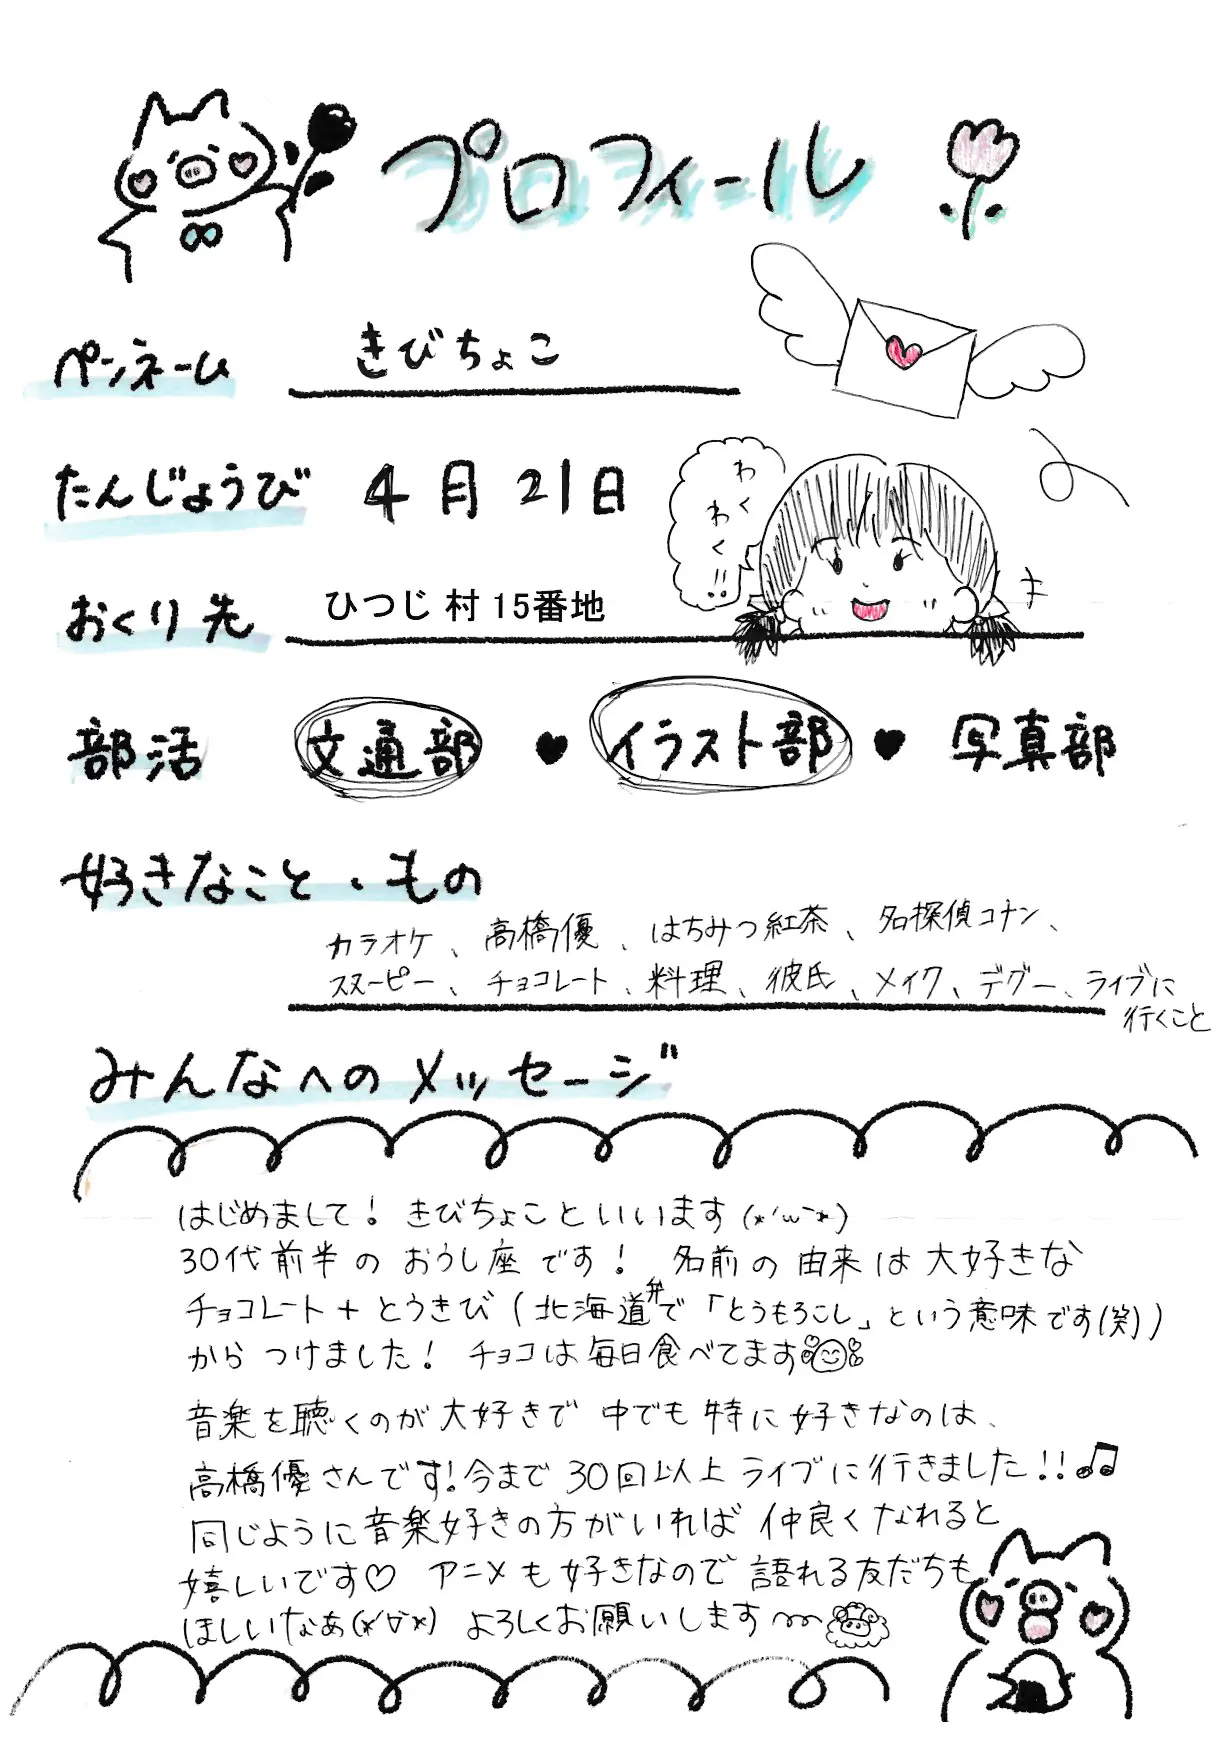 プロフィール
ペンネーム きびちょこ
わくわく!!
たんじょうび 4月21日
おくり先 ひつじ村15番地
部活 文通部 ♥ イラスト部 ♥ 写真部
好きなこと・もの
カラオケ、高橋優、はちみつ紅茶、名探偵コナン、
スヌーピー、チョコレート、料理、彼氏、メイク、デグー、ライブに
行くこと
みんなへのメッセージ
はじめまして! きびちょこといいます(*'ω`*)
30代前半のおうし座です! 名前の由来は大好きな
チョコレート+とうきび(北海道弁で「とうもろこし」という意味です(笑))
からつけました! チョコは毎日食べてます
音楽を聴くのが大好きで中でも特に好きなのは、
高橋優さんです!今まで30回以上ライブに行きました!!♫
同じように音楽好きの方がいれば仲良くなれると
嬉しいです♡ アニメも好きなので語れる友だちも
ほしいなあ(*'∀'*) よろしくお願いします〜